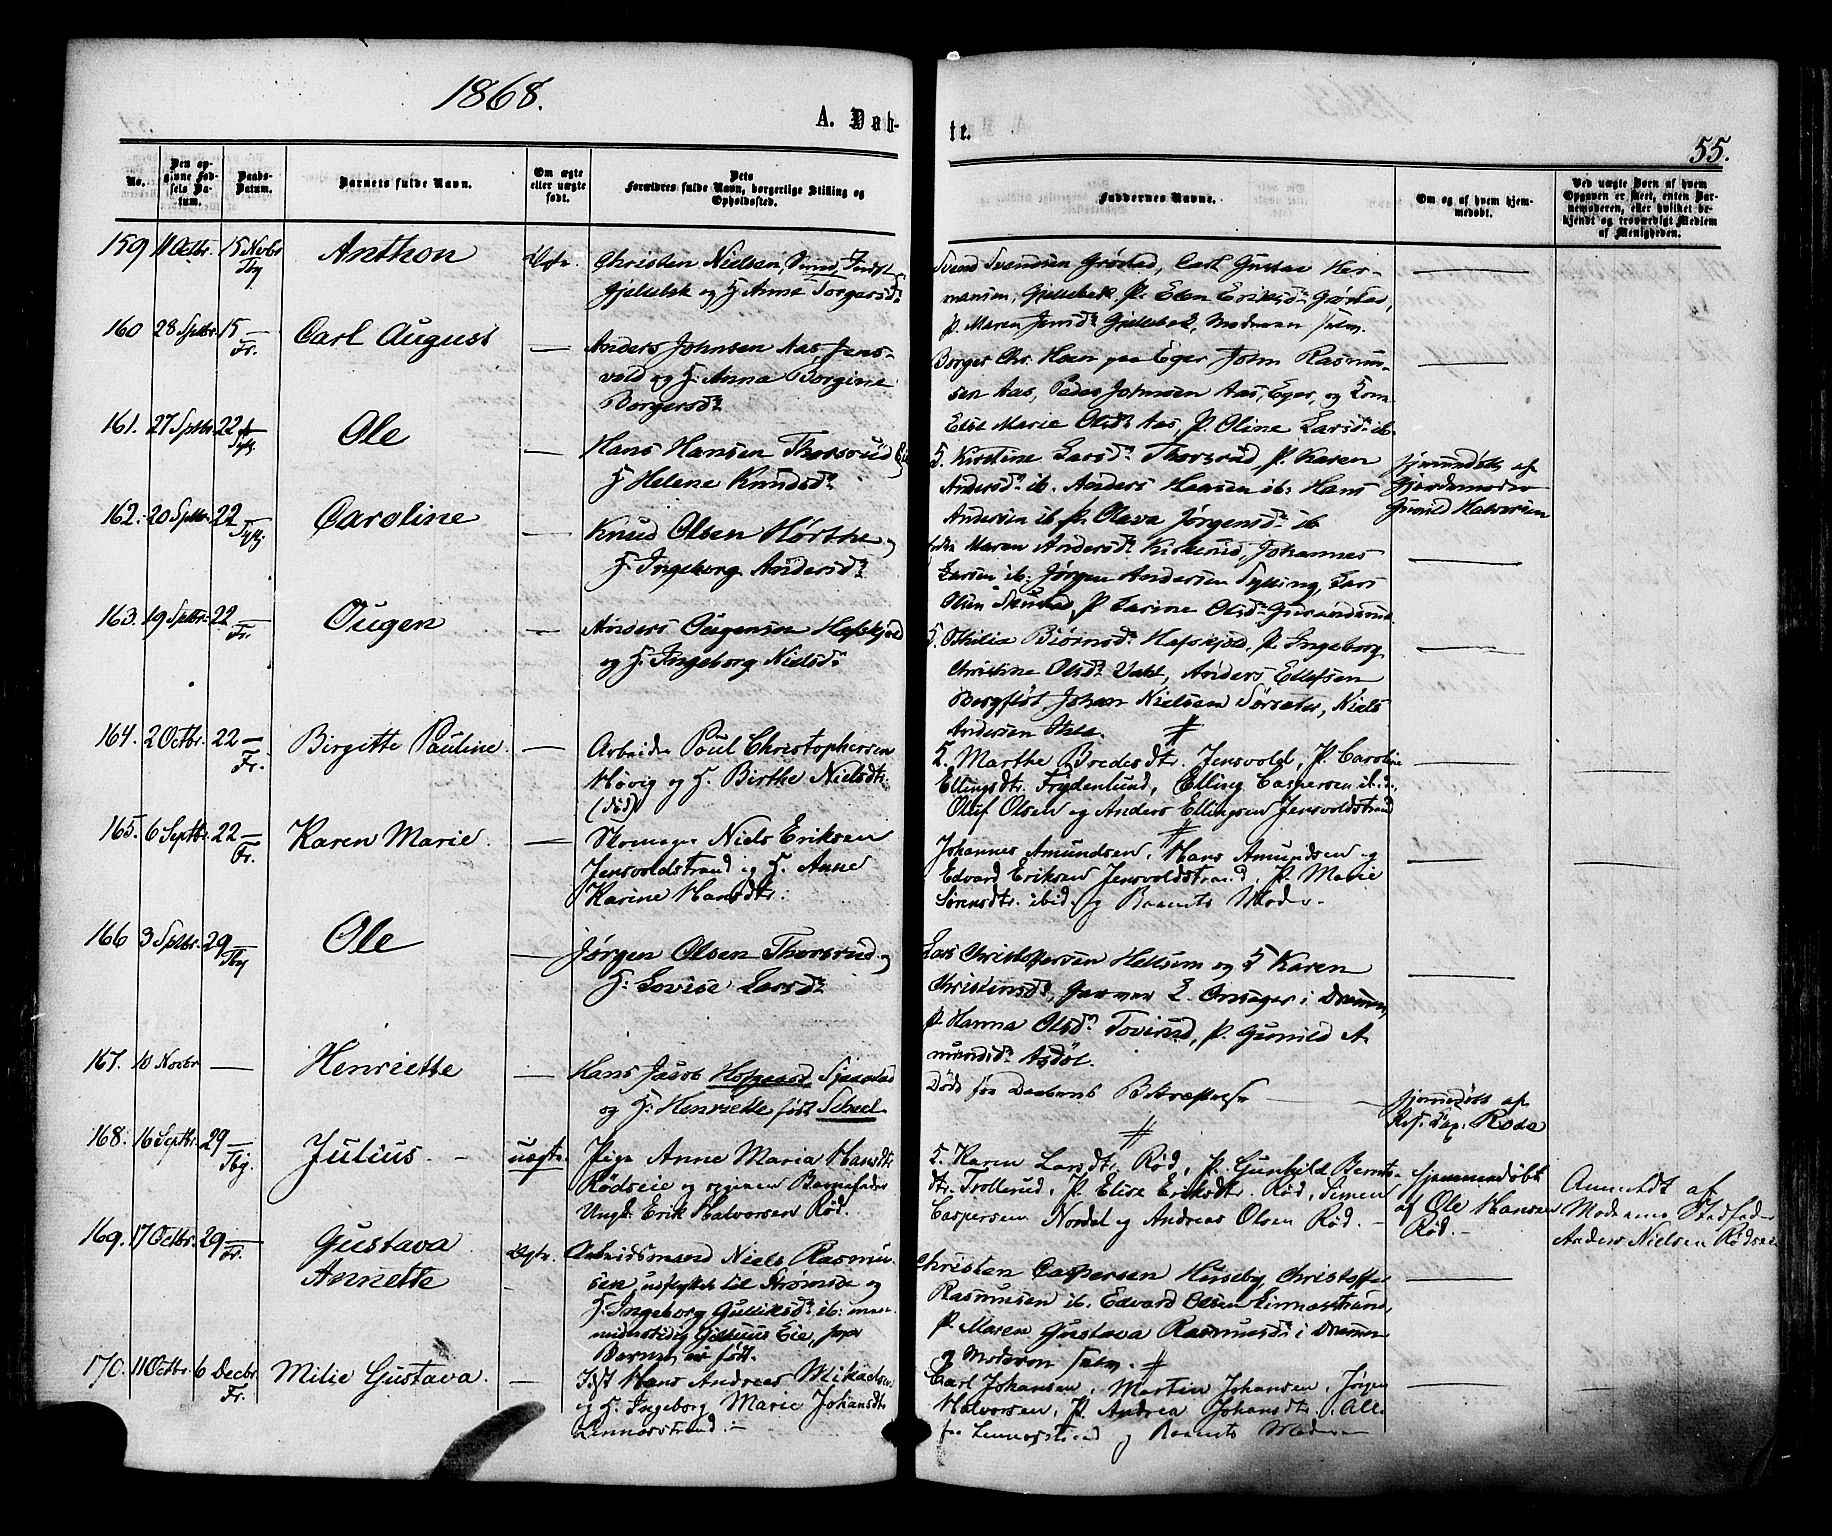 1868.
A. Døb-
te.
55.
No.
Den op-
givne Fød-
sels Da-
tum.
Daabs-
Datum.
Barnets fulde Navn.
Om ægte
eller uægte
født.
Dets
Forældres fulde Navn, borgerlige Stilling og
Opholdssted.
Faddernes Navne.
Om og af hvem hjem-
medøbt.
Ved uægte Børn af hvem
Opgaven er skeet, enten Bar-
nemoderen, eller hvilket be-
kjendt og troværdigt Medlem
af Menigheden.
159 11 Octbr. 15 Novbr Tbg Anthon Ægte.
Christen Nielsen, Smed, Indst
Gjellebek og H. Anne Torgersd.
Svend Svendsen Grøstad, Carl Gustav Her-
mansen, Gjellebek, P. Elen Eriksd. Grøstad,
P. Maren Jensd. Gjellebek, Moderen selv.
160 28 Sptbr. 15 — Fr. Carl August —
Anders Johnsen Aas, Jens-
vold og H. Anna Borgine
Borgersd.
Borger Chr. Hoen paa Eger John Rasmus-
sen Aas, Peder Johnsen Aas, Eger, og Kone
Else Marie Olsd. Aas, P. Oline Larsd. ib.
161. 27 Sptbr. 22 Sylg. Ole —
Hans Hansen Thorsrud og
H Helene Knudsd.
H. Kirstine Larsd. Thorsrud, P. Karen
Andersd. ib. Anders Hansen ib. Hans
Andersen ib P. Olava Jørgensd. ib
hjemmedøbt af
Gjordemoder
Gunild Halvorsen
162. 20 Sptbr. 22 Sylg. Caroline —
Knud Olsen Hørthe og
H. Ingeborg Andersd.
Maren Andersd. Kirkerud, Johannes
Larsen ib. Jørgen Andersen Sylling, Lars
Olsen Skustad, P. Larine Olsd.
163. 19 Sptbr. 22 — Fr. Ougen —
Anders Ougensen Hafskjold
og H. Ingeborg Nielsd.
H. Othilia Biørnsd. Hafskjold, P. Ingeborg
Christine Olsd. Vahl, Anders Ellefsen
Bergfløt, Johan Nielsen Sørsæter, Niels
Andersen
164. 2 Octbr. 22 — Fr. Birgitte Pauline. —
Arbeider Poul Christophersen
Høvig og H. Birthe Nielsdtr.
(død)
H. Marthe Bredesdtr. Jensvold, P. Caroline
Ellingsdtr. Frydenlund, Elling Caspersen ibd.,
Oluf Olsen og Anders Ellingsen Jensvoldstrand
165. 6 Septbr. 22 — Fr. Karen Marie. —
Skomager Niels Eriksen
Jensvoldstrand og H. Anne
Karine Hansdtr.
Johannes Amundsen, Hans Amundsen og
Edvard Eriksen Jensvoldstrand, P. Marie
Sørensdtr. ibid. og Barnets Moder.
166 3 Sptbr. 29 — Tbg Ole —
Jørgen Olsen Thorsrud og
H. Lovise Larsd.
Lars Christophersen Hellsum og H Karen
Christensd., Garver L. Onsager i Drammen,
P. Hanna Olsd. Toverud, P. Gunild A-
mundsd. Asdøl.
167. 10 Novbr — Henriette —
Hans Jacob Hofgaard Sjaastad
og H. Henriette født Scheel
Døde før Daabens Bekræftelse —
hjemmedøbt af
Res. Cap. Rode
168. 16 Septbr. 29 — Tbg. Julius. — uægte.
Pige Anne Maria Hansdtr
Rødseie og opgiven Barnefader
Ungk. Erik Halvorsen Rød.
H. Karen Larsdtr. Rød, P. Gunhild Bernts-
dtr. Trollerud, P. Elise Eriksdtr. Rød, Simen
Caspersen Nordal og Andreas Olsen Rød. —
hjemmedøbt
af Ole Hansen
Rød.
Anmeldt af
Moderens Stedfader
Anders Nielsen Rødseie
169. 17 Octbr. 29 — Fr. Gustava
Annette Ægte.
Arbeidsmand Niels Rasmus-
sen, udflyttet til Strømsø og
H. Ingeborg Gulliksd. ib.
Eie, hvor
Barnet er født.
Christen Caspersen Huseby, Christoffer
Rasmussen ib. Edvard Olsen Linnesstrand
P. Maren Gustava Rasmusd. i Drammen
og Moderen selv.
170. 11 Octbr. 6 Decbr. Fr. Milie Gustava. —
Idst Hans Andreas Mikaelsen
og H. Ingeborg Marie Johansdtr
Linnesstrand. —
Carl Johansen, Martin Johansen, Jørgen
Halvorsen, P. Andrea Johansdtr. Alle
fra Linnesstrand og Barnets Moder